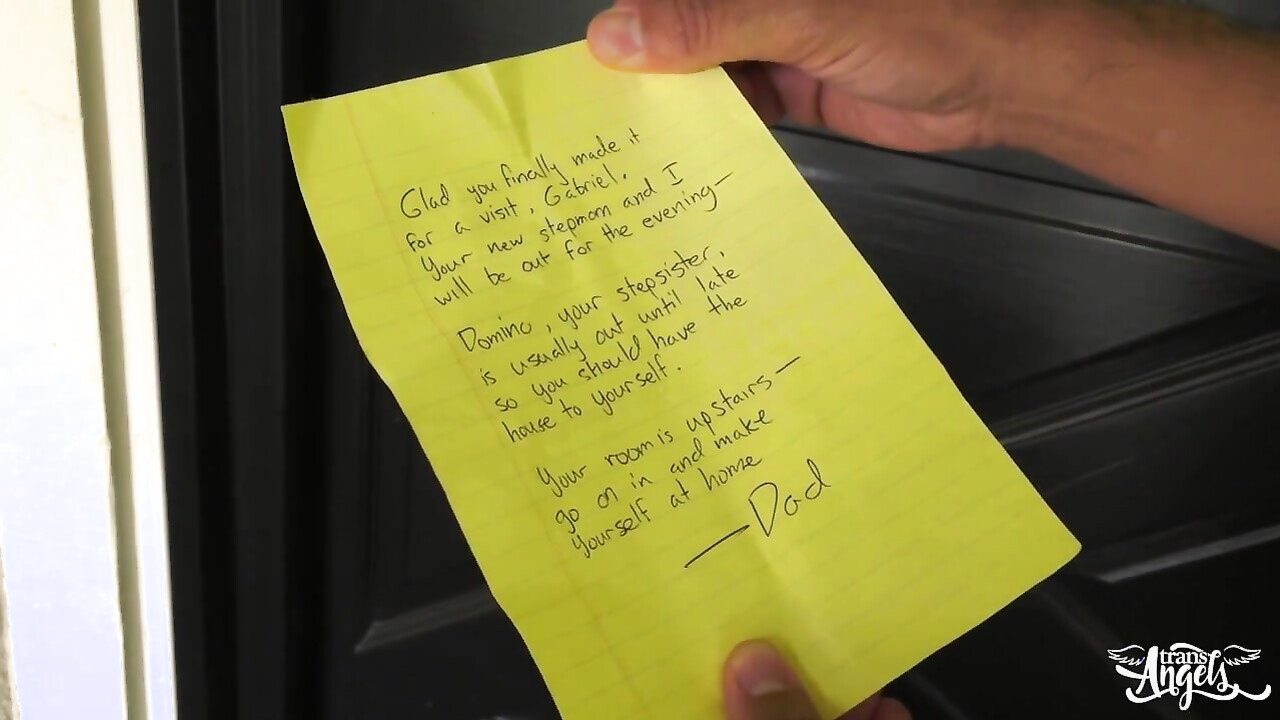 Glad you finally made it
for a visit, Gabriel.
Your new stepmom and I
will be out for the evening—
Domino, your stepsister,
is usually out until late
so you should have the
house to yourself.
Your room is upstairs—
go on in and make
yourself at home
—Dad
trans
Angels